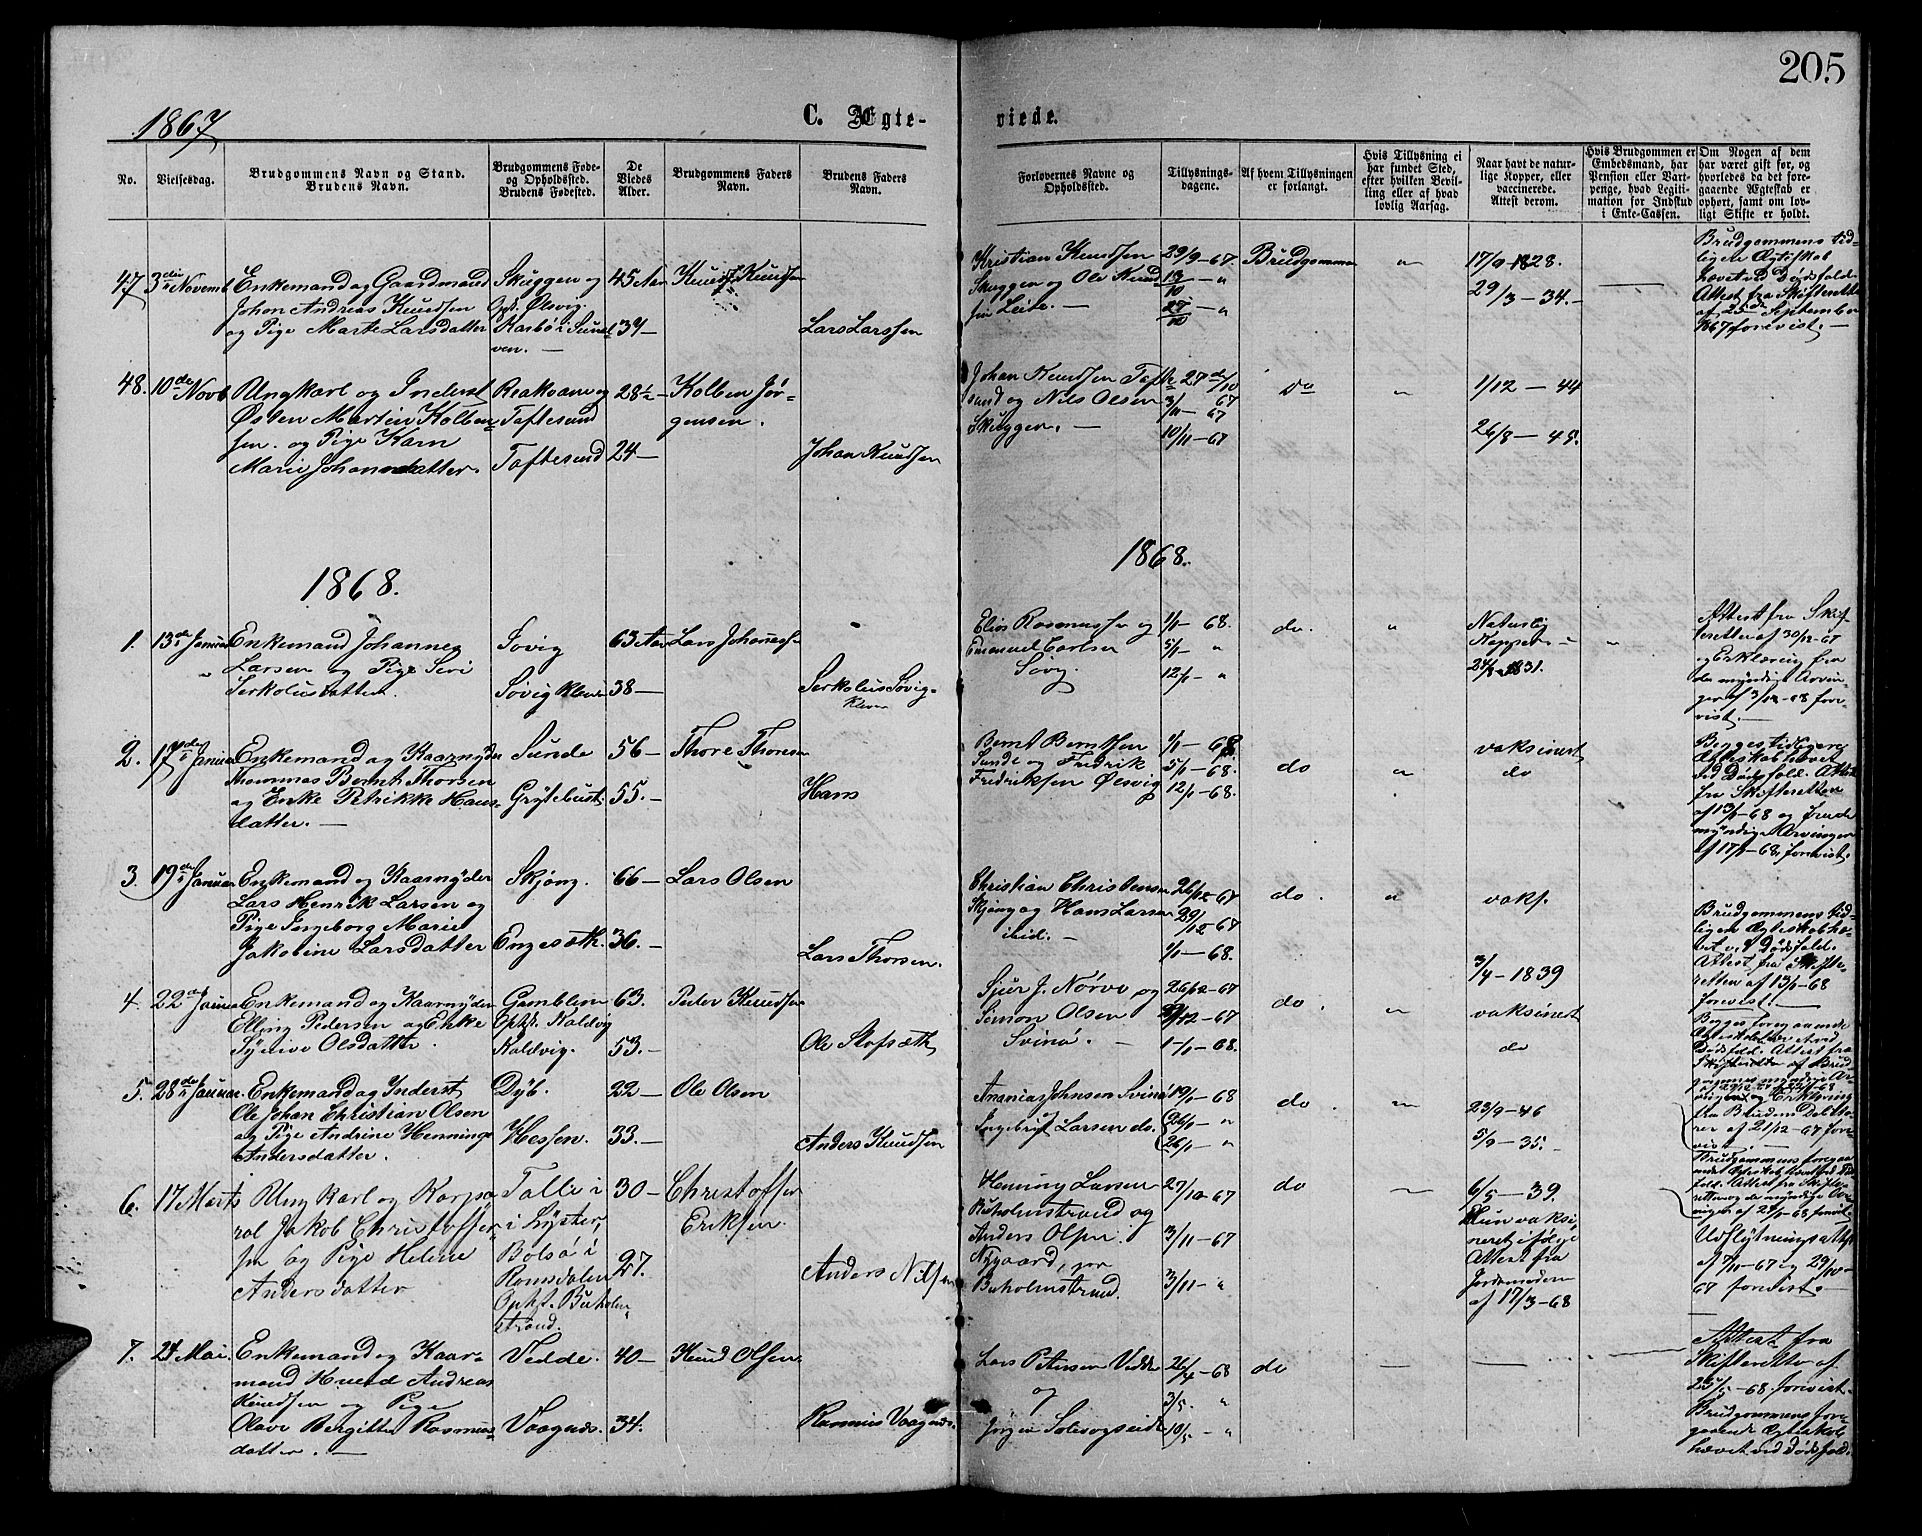 205
1867
C. Ægte-
viede.
No.
Vielsesdag.
Brudgommens Navn og Stand.
Brudens Navn.
Brudgommens Føde-
og Opholdssted.
Brudens Fødested.
De
Viedes
Alder.
Brudgommens Faders
Navn.
Brudens Faders
Navn.
Forlovernes Navne og
Opholdssted.
Tillysnings-
dagene.
Af hvem Tillysningen
er forlangt.
Hvis Tillysning ei
har fundet Sted,
efter hvilken Bevil-
ling eller af hvad
lovlig Aarsag.
Naar havt de natur-
lige Kopper, eller
vaccinerede.
Attest derom.
Hvis Brudgommen er
Embedsmand, har
Pension eller Vart-
penge, hvad Legiti-
mation for Indskud
i Enke-Cassen.
Om Nogen af dem
har været gift før, og
hvorledes da det fore-
gaaende Ægteskab er
ophørt, samt om lov-
ligt Skifte er holdt.
47
3die Novemb
Enkemand og Gaardmand
Johan Andreas Knudsen
og Pige Marte Larsdatter
Skuggen og
Opt. Ølsvig.
ven. —
45 Aar
34—
Knud Knudsen
Lars Larssen
Kristian Knudsen
Skuggen og Ole Knud
sen Leite. —
29/9-67.
13/10 — "
27/10 — "
Brudgommen
"
17/9 1828.
29/3 — 34.—
Brudgommens tid-
ligere Ægteskab
hævet ved Dødsfald.
Attest fra Skifteretten
af 25de September
1867 forevist. —
48.
10de Novb
Ungkarl og Inderst
Østen Martin Kolben-
sen og Pige Karn
Marie Johannsdatter.
Taftesund
Taftesund
28½—
24—
Kolben Jør-
gensen.
Johan Knudsen
Johan Knudsen Tafte-
sund og Nils Olsen
Skuggen. —
27de/10
3/11 — 67
10/11 — 67
do
"
1/12 — 44
26/8 — 45.
1868.
1868.
1.
13de Januar
Enkemand Johannes
Larsen og Pige Siri
Serkolusdatter.
Søvig
Søvigkleven
63 Aar
38—
Lars Johaness.
Serkolus Søvig-
kleven
Elias Rasmussen og
Emanuel Carlsen
Søvig
1/1 — 68.
5/1 — "
12/1 — "
do.
"
Naturlig
Kopper —
24/8 1831.
"
Attest fra Skif-
teretten af 30/12-67
og Erklæring fra
de myndige Arvin-
ger af 3/12-68 fore-
vist. —
2.
17de Januar
Enkemand og Kaarmyder
Thommas Bernt Thorsen
og Enke Petrikke Hans-
datter. —
Sunde
Grytebust
56—
55.—
Thore Thorsen
Hans
Bernt Berntsen
Sunde og Fredrik
Fredriksen Ølsvig
1/1 — 68
5/1 — 68.
12/1 — 68.
do
"
vaksinert
do
Begges tidligere
Ægteskab hævet
ved Dødsfald. Attest
fra Skifteretten
af 13/1-68 og fra de
myndige Arvinger
af 17/1-68, forevist.
3.
19de Januar
Enkemand og Kaarmyder
Lars Henrik Larsen og
Pige Ingeborg Marie
Jakobine Larsdatter
Skjong.
Engesæth.
66—
36.—
Lars Olsen
Lars Thorsen.
Christian Christensen
Skjong og Hans Larsen
ibid. —
26/12-67
29/12-67
1/1 — 68.
do.
"
vaks.
3/4 - 1839
Brudgommens tid-
ligere Ægteskab hæ-
vet v. Dødsfald.
Attest fra Skifte-
retten af 13/1-68
forevist. —
4.
22de Januar
Enkemand og Kaarmyder
Elling Pedersen og Enke
Synnøve Olsdatter.
Gamblem
Opt. Kaldvig
Kaldvig.
63.
53.—
Peder Knudsen
Ole Slofsæth
Sjur J. Nørve og
Simon Olsen
Svinø. —
26/12-67
29/12-67
1/1-68.
do.
"
vaksinert
do
5.
28de Januar.
Enkemand og Inderst
Ole Johan Christian Olsen
og Pige Andrine Hennings
Andersdatter.
Dyb.
Hessen.
22—
33.—
Ole Olsen
Anders Knudsen
Ananias Johnsen Svinø
Ingebrigt Larsen do.
19/1-68
26/1- "
26/1- "
do.
"
23/9-46
5/9-35.
6.
17 Marts
Ungkarl og Korpo-
ral Jakob Christoffer-
sen og Pige Helene
Andersdatter
Talle i
i Lyster,
Bolsø i
Romsdalen
Opht. Buholm-
strand.
30—
27.
Christoffer
Eriksen.
Anders Nilsen
Henning Larsen
Buholmstrand og
Anders Olsen
Nygaard, pr
Buholmstrand.
27/10-67
3/11-67
3/11- "
do
6/5-39.
Hun vaksi-
neret ifølge
Attest fra
Jordemoderen
af 17/3-68
Udflytningsattest
af 7/10-67 og 29/10-
67 forevist. —
7.
24 Mai.
Enkemand og Kaar-
mand Knud Andreas
Knudsen og Pige
Olave Bergitte Rasmus-
datter. —
Vedde.
Vaagnes.
40—
34.
Knud Olsen
Rasmus Vaagnes.
Lars Petersen Vedde
og
Jørgen Solevogseide
26/4-68
3/5. "
10/5- "
do
Attest fra
Skifteretten af
25/5-68 forevist.
Brudgommens fore-
gaaende Ægteskab
hævet ved Dødsfald.